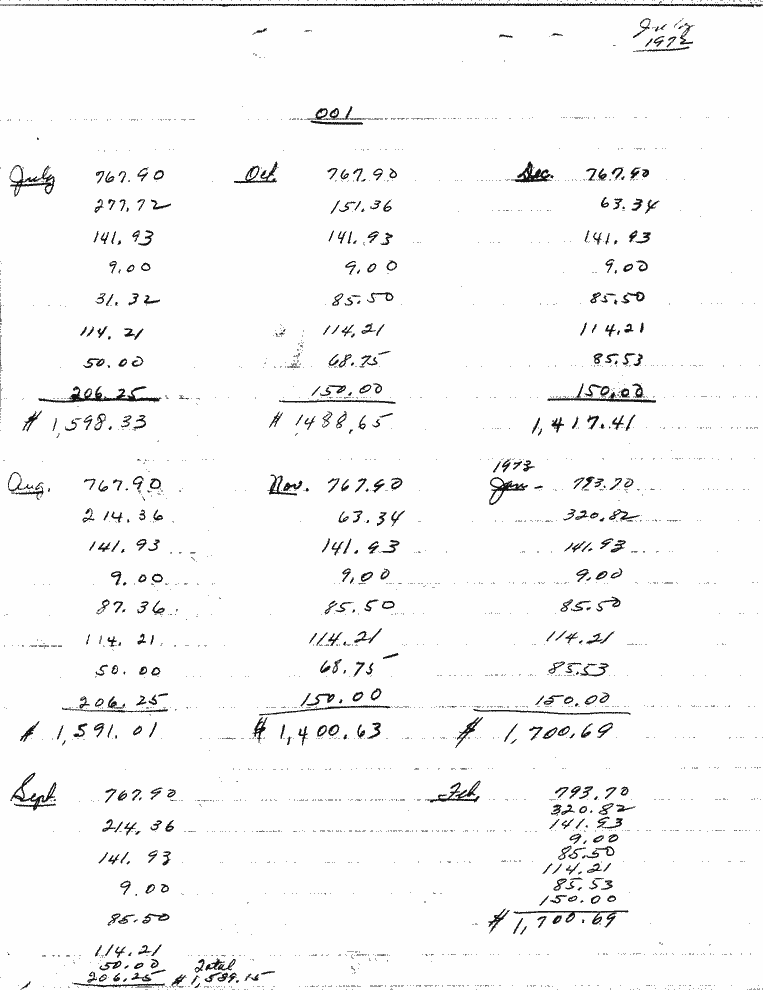 July
1972
001
July 767.90
277.72
141.93
9.00
31.32
114.21
50.00
206.25
$ 1,598.33
Oct. 767.90
151.36
141.93
9.00
85.50
114.21
68.75
150.00
$ 1488.65
Dec. 767.90
63.34
141.93
9.00
85.50
114.21
85.53
150.00
1,417.41
Aug. 767.90
214.36
141.93
9.00
87.36
114.21
50.00
206.25
$ 1,591.01
Nov. 767.90
63.34
141.93
9.00
85.50
114.21
68.75
150.00
$ 1,400.63
1973
Jan - 793.70
320.82
141.93
9.00
85.50
114.21
85.53
150.00
$ 1,700.69
Sept. 767.90
214.36
141.93
9.00
85.50
114.21
50.00
206.25
Total
$ 1,589.15
Feb. 793.70
320.82
141.93
9.00
85.50
114.21
85.53
150.00
$ 1,700.69